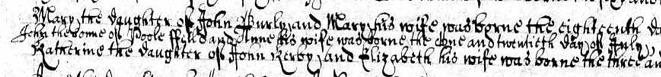 Mary the daughter of John Burly and Mary his wife was borne the eighteenth da
John the sonne of Poole ffeild and Anne his wife was borne the one and twentieth day of July
Katherine the daughter of John Kerby and Elizabeth his wife was borne the three an